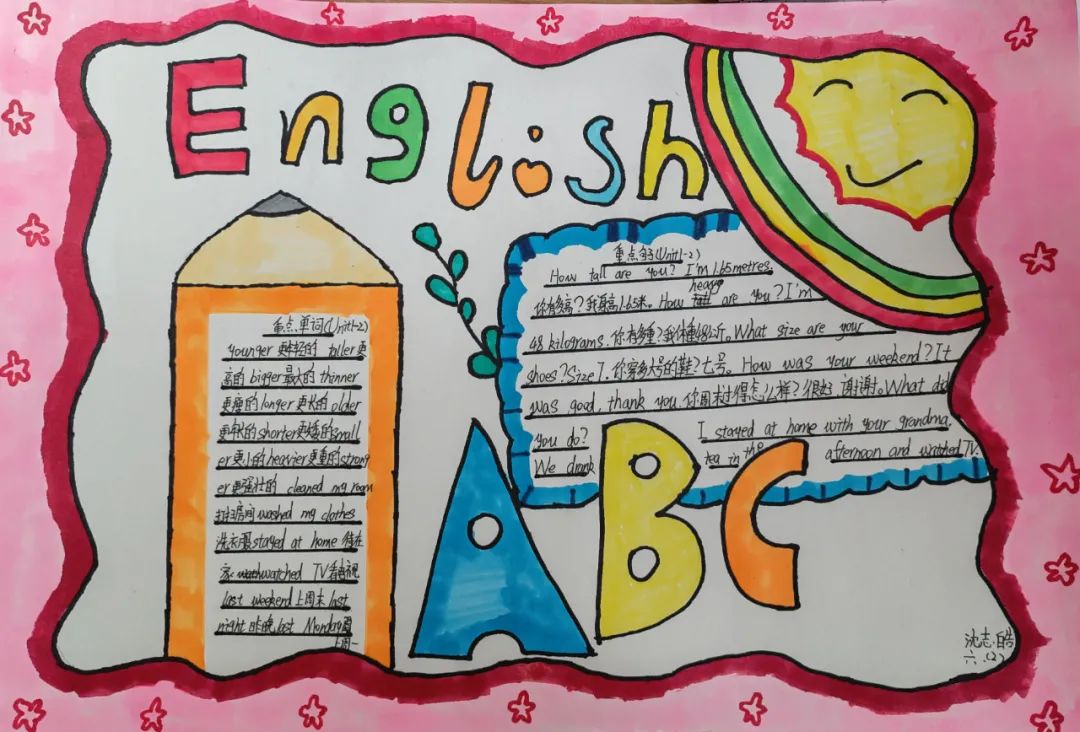 English
重点单词(Unit1-2)
younger 更年轻的 taller 更
高的 bigger 最大的 thinner
更瘦的 longer 更长的 older
更年长的 shorter 更矮的 small
er 更小的 heavier 更重的 strong
er 更强壮的 cleaned my room
打扫房间 washed my clothes
洗衣服 stayed at home 待在
家 watched TV 看电视
last weekend 上周末 last
night 昨晚 last Monday 周
上周一
重点句子(Unit1-2)
How tall are you? I'm 1.65 metres.
heavy
你有多高?我身高1.65米。How are you? I'm
48 kilograms. 你有多重?我体重48公斤。What size are your
shoes? Size 7. 你穿多大号的鞋?七号。How was your weekend? It
was good, thank you. 你周末过得怎么样?很好,谢谢。What did
you do? I stayed at home with your grandma.
We drank tea in the afternoon and watched TV.
ABC
沈志皓
六.(2)